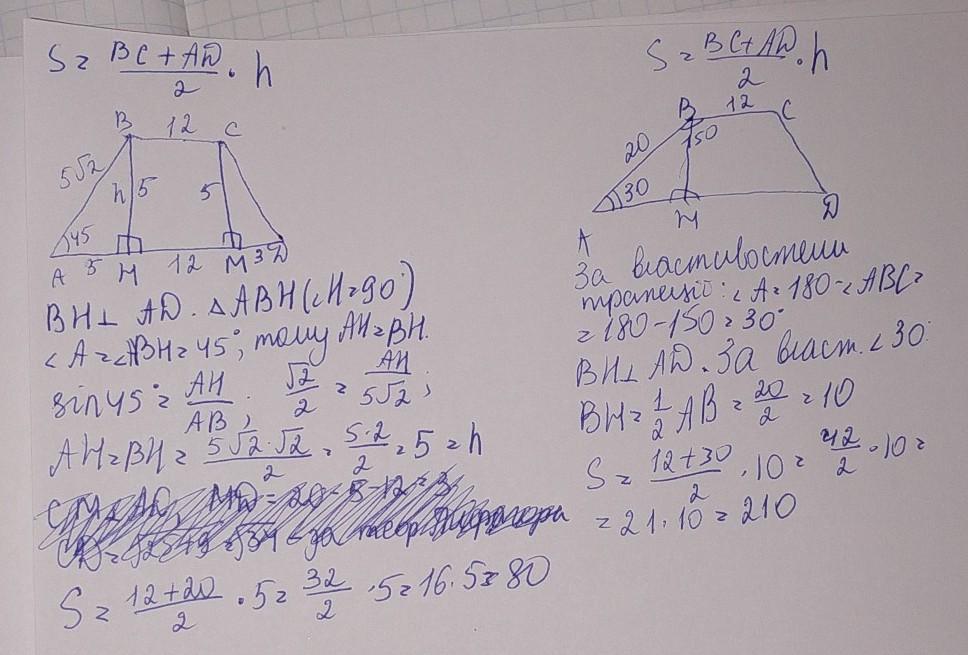 S = (BC + AD)/2 · h
B 12 C
5√2 h 5 5
45
A 5 H 12 M 3 D
BH⊥ AD. △ABH(∠H=90°)
∠A=∠ABH=45°; тому AH=BH.
sin45°= AH/AB; √2/2 = AH/5√2;
AH=BH= 5√2·√2/2 = 5·2/2 = 5 = h
S = (12+20)/2 · 5 = 32/2 · 5 = 16·5 = 80
S = (BC+AD)/2 · h
B 12 C
20 150
30
A M D
За властивостями
трапеції: ∠A=180-∠ABC=
=180-150=30°
BH⊥ AD. За власт. ∠30°
BH= 1/2 AB = 20/2 = 10
S = (12+30)/2 · 10 = 42/2 · 10 =
= 21·10 = 210